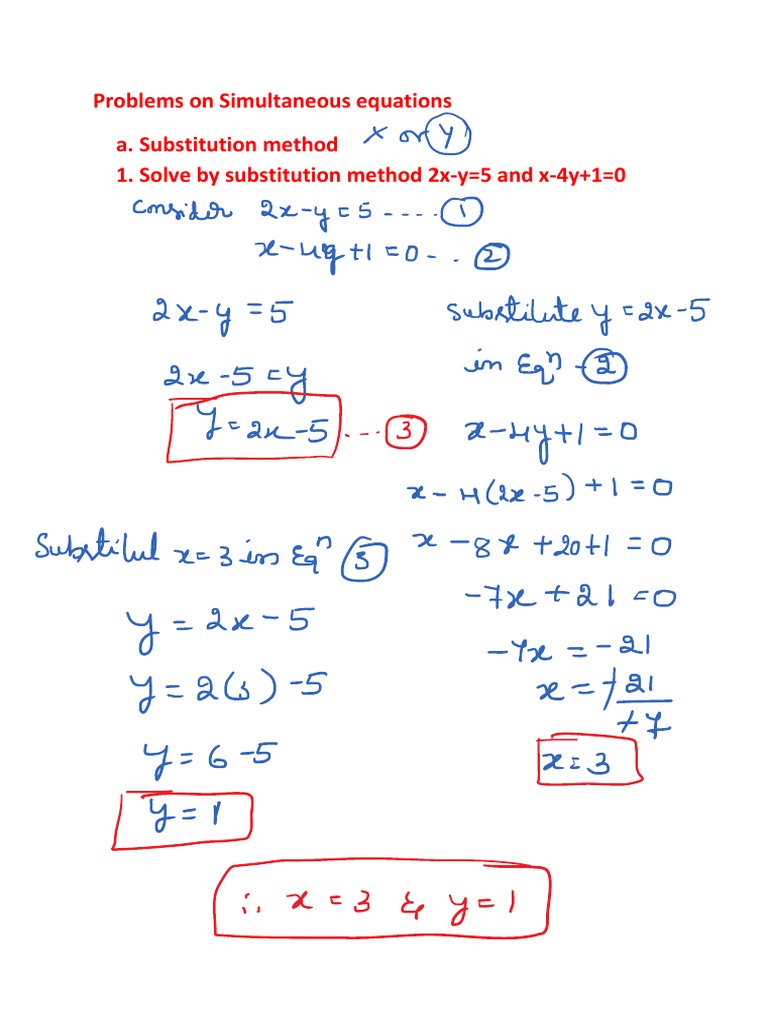 Problems on Simultaneous equations
a. Substitution method x or y
1. Solve by substitution method 2x-y=5 and x-4y+1=0
Consider 2x-y=5 ---- 1
x-4y+1=0 -.. 2
2x-y=5
2x-5=y
y=2x-5 ---- 3
Substitute y=2x-5
in Eqn - 2
x-4y+1=0
x-4(2x-5)+1=0
x-8x+20+1=0
-7x+21=0
-7x=-21
x=-21/-7
x=3
Substitut x=3 in Eqn 3
y=2x-5
y=2(3)-5
y=6-5
y=1
∴ x=3 & y=1